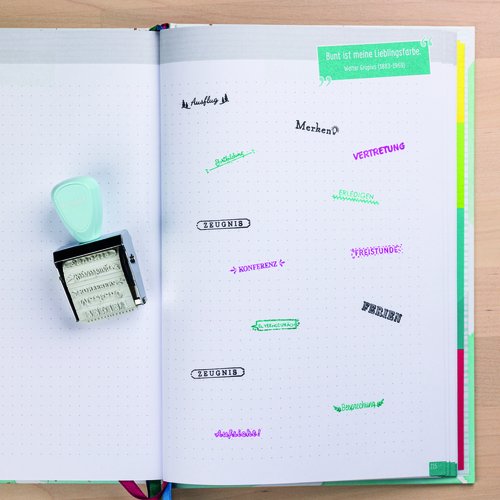 Bunt ist meine Lieblingsfarbe.
Walter Gropius (1883-1969)
Ausflug
Merken
VERTRETUNG
Fortbildung
ERLEDIGEN
ZEUGNIS
FREISTUNDE
KONFERENZ
FERIEN
ELTERNGESPRÄCH
ZEUGNIS
Besprechung
115